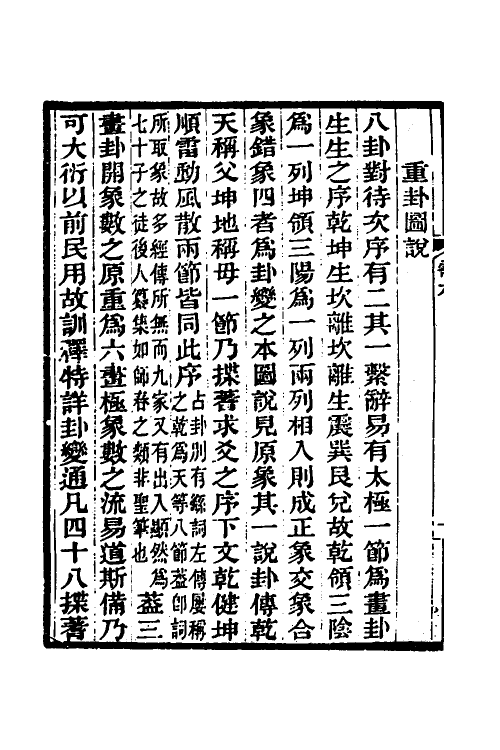 重卦圖說
八卦對待次序有二其一繫辭易有太極一節為畫卦
生生之序乾坤生坎離坎離生震巽艮兌故乾領三陰
為一列坤領三陽為一列兩列相入則成正象交象合
象錯象四者為卦變之本圖說見原象其一說卦傳乾
天稱父坤地稱母一節乃揲蓍求爻之序下文乾健坤
順雷動風散兩節皆同此序占卦別有繇詞左傳屢稱
之乾為天等八節蓋卽詞
所取象故多經傳所無而九家又有出入顯然為
七十子之徒後人纂集如師春之類非聖筆也蓋三
畫卦開象數之原重為六畫極象數之流易道斯備乃
可大衍以前民用故訓釋特詳卦變通凡四十八揲蓍